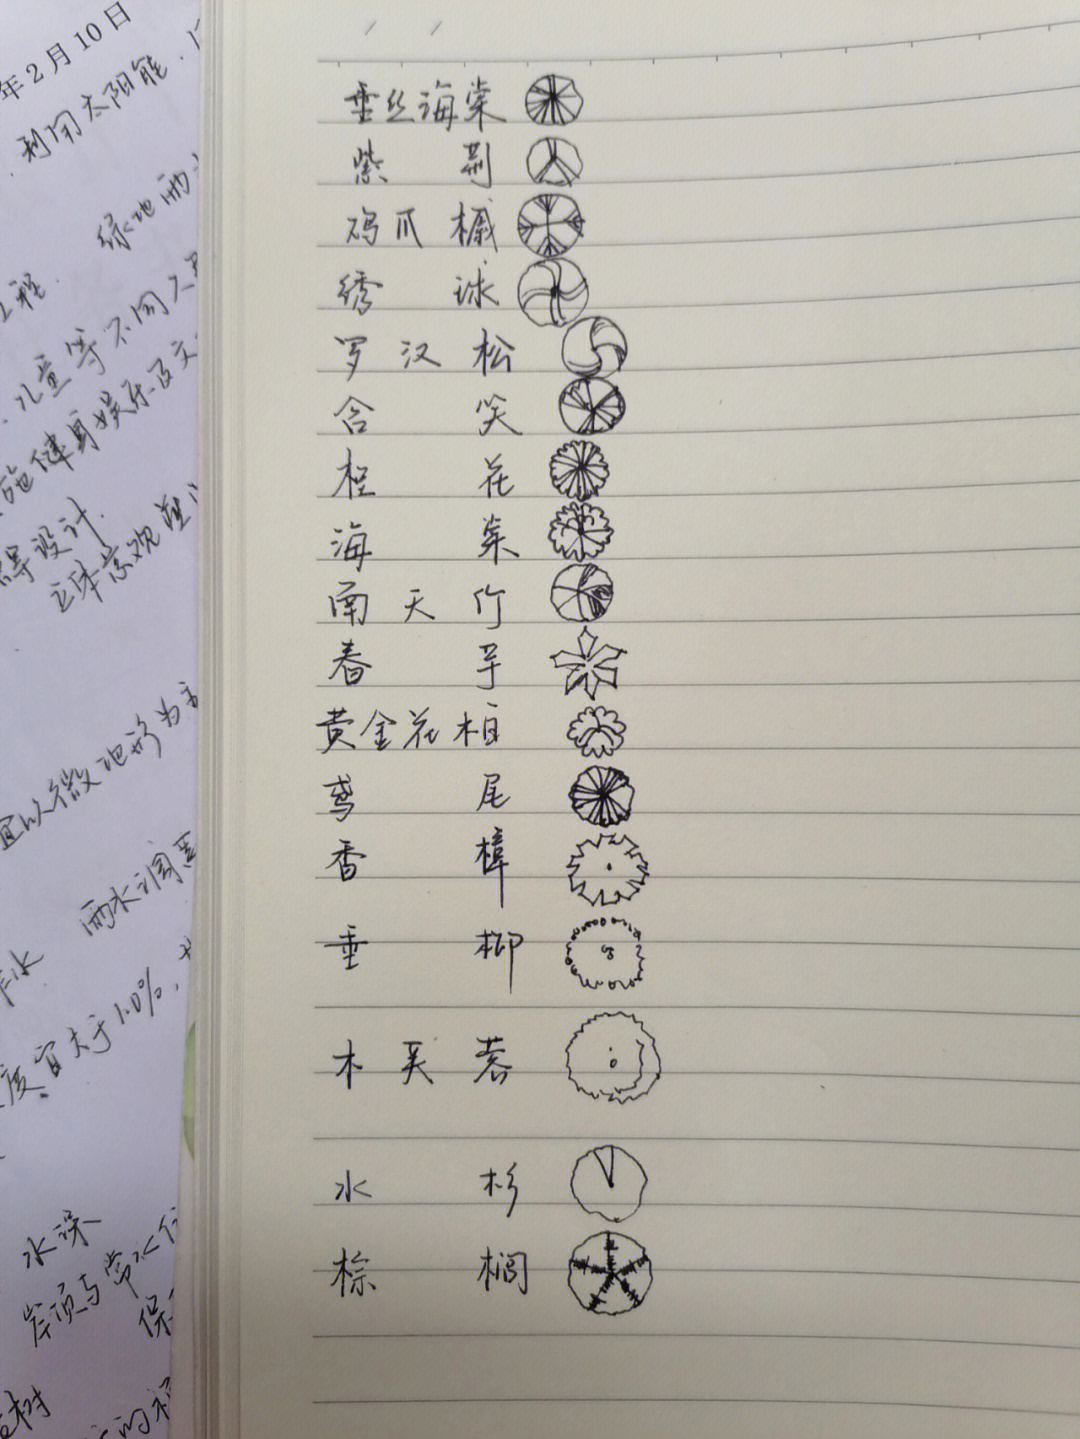 年2月10日
利用太阳能.
绿地雨
工程.
儿童等不同人
施健身娱乐及文
得设计.
立体景观
宜以微地形为
雨水调蓄
年水
度宜大于1.0%,
水深
岸顶与常水位
保
树
的
垂丝海棠
紫荆
鸡爪槭
绣球
罗汉松
含笑
桂花
海棠
南天竹
春芋
黄金花柏
鸢尾
香樟
垂柳
木芙蓉
水杉
棕榈